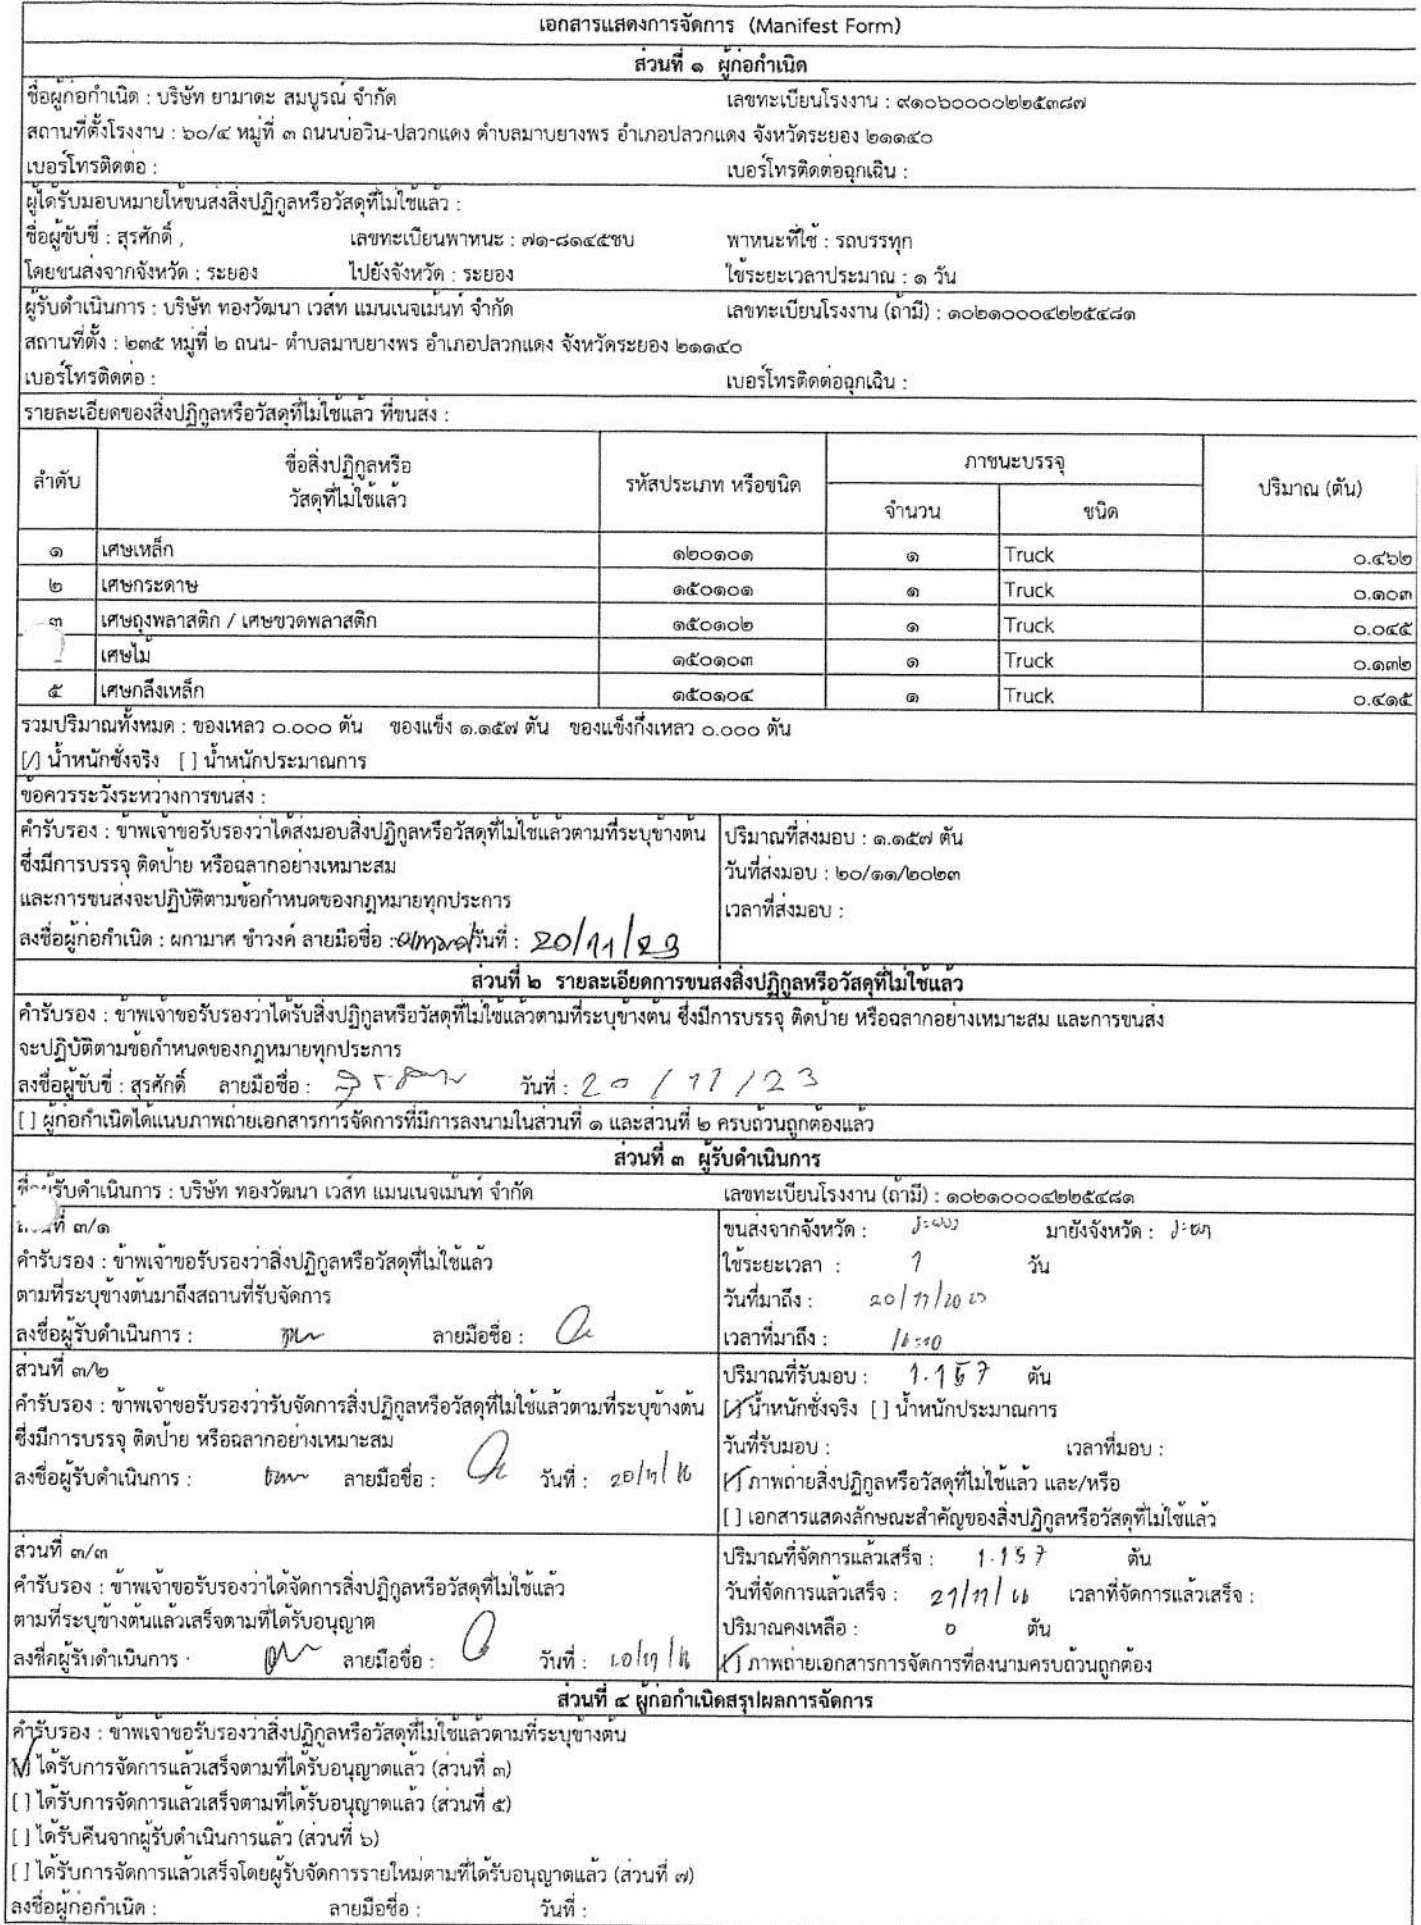 เอกสารแสดงการจัดการ (Manifest Form)
ส่วนที่ ๑ ผู้ก่อกำเนิด
ชื่อผู้ก่อกำเนิด : บริษัท ยามาดะ สมบูรณ์ จำกัด เลขทะเบียนโรงงาน : ๙๑๐๖๐๐๐๐๒๒๕๓๘๗
สถานที่ตั้งโรงงาน : ๖๐/๔ หมู่ที่ ๓ ถนนบ่อวิน-ปลวกแดง ตำบลมาบยางพร อำเภอปลวกแดง จังหวัดระยอง ๒๑๑๔๐
เบอร์โทรติดต่อ : เบอร์โทรติดต่อฉุกเฉิน :
ผู้ได้รับมอบหมายให้ขนส่งสิ่งปฏิกูลหรือวัสดุที่ไม่ใช้แล้ว :
ชื่อผู้ขับขี่ : สุรศักดิ์ , เลขทะเบียนพาหนะ : ๗๑-๘๑๔๕ชบ พาหนะที่ใช้ : รถบรรทุก
โดยขนส่งจากจังหวัด : ระยอง ไปยังจังหวัด : ระยอง ใช้ระยะเวลาประมาณ : ๑ วัน
ผู้รับดำเนินการ : บริษัท ทองวัฒนา เวส์ท แมนเนจเม้นท์ จำกัด เลขทะเบียนโรงงาน (ถ้ามี) : ๑๐๒๑๐๐๐๔๒๒๕๔๘๑
สถานที่ตั้ง : ๒๓๕ หมู่ที่ ๒ ถนน- ตำบลมาบยางพร อำเภอปลวกแดง จังหวัดระยอง ๒๑๑๔๐
เบอร์โทรติดต่อ : เบอร์โทรติดต่อฉุกเฉิน :
รายละเอียดของสิ่งปฏิกูลหรือวัสดุที่ไม่ใช้แล้ว ที่ขนส่ง :
ลำดับ ชื่อสิ่งปฏิกูลหรือ รหัสประเภท หรือชนิด ภาชนะบรรจุ ปริมาณ (ตัน)
วัสดุที่ไม่ใช้แล้ว จำนวน ชนิด
๑ เศษเหล็ก ๑๒๐๑๐๑ ๑ Truck ๐.๔๖๒
๒ เศษกระดาษ ๑๕๐๑๐๑ ๑ Truck ๐.๑๐๓
๓ เศษถุงพลาสติก / เศษขวดพลาสติก ๑๕๐๑๐๒ ๑ Truck ๐.๐๔๕
เศษไม้ ๑๕๐๑๐๓ ๑ Truck ๐.๑๓๒
๕ เศษกลึงเหล็ก ๑๕๐๑๐๔ ๑ Truck ๐.๔๑๕
รวมปริมาณทั้งหมด : ของเหลว ๐.๐๐๐ ตัน ของแข็ง ๑.๑๕๗ ตัน ของแข็งกึ่งเหลว ๐.๐๐๐ ตัน
[/] น้ำหนักชั่งจริง [ ] น้ำหนักประมาณการ
ข้อควรระวังระหว่างการขนส่ง :
คำรับรอง : ข้าพเจ้าขอรับรองว่าได้ส่งมอบสิ่งปฏิกูลหรือวัสดุที่ไม่ใช้แล้วตามที่ระบุข้างต้น ปริมาณที่ส่งมอบ : ๑.๑๕๗ ตัน
ซึ่งมีการบรรจุ ติดป้าย หรือฉลากอย่างเหมาะสม วันที่ส่งมอบ : ๒๐/๑๑/๒๐๒๓
และการขนส่งจะปฏิบัติตามข้อกำหนดของกฎหมายทุกประการ เวลาที่ส่งมอบ :
ลงชื่อผู้ก่อกำเนิด : ผกามาศ ขำวงค์ ลายมือชื่อ : วันที่ : 20/11/23
ส่วนที่ ๒ รายละเอียดการขนส่งสิ่งปฏิกูลหรือวัสดุที่ไม่ใช้แล้ว
คำรับรอง : ข้าพเจ้าขอรับรองว่าได้รับสิ่งปฏิกูลหรือวัสดุที่ไม่ใช้แล้วตามที่ระบุข้างต้น ซึ่งมีการบรรจุ ติดป้าย หรือฉลากอย่างเหมาะสม และการขนส่ง
จะปฏิบัติตามข้อกำหนดของกฎหมายทุกประการ
ลงชื่อผู้ขับขี่ : สุรศักดิ์ ลายมือชื่อ : วันที่ : 20/11/23
[ ] ผู้ก่อกำเนิดได้แนบภาพถ่ายเอกสารการจัดการที่มีการลงนามในส่วนที่ ๑ และส่วนที่ ๒ ครบถ้วนถูกต้องแล้ว
ส่วนที่ ๓ ผู้รับดำเนินการ
ชื่อผู้รับดำเนินการ : บริษัท ทองวัฒนา เวส์ท แมนเนจเม้นท์ จำกัด เลขทะเบียนโรงงาน (ถ้ามี) : ๑๐๒๑๐๐๐๔๒๒๕๔๘๑
ส่วนที่ ๓/๑ ขนส่งจากจังหวัด : ระยอง มายังจังหวัด : ระยอง
คำรับรอง : ข้าพเจ้าขอรับรองว่าสิ่งปฏิกูลหรือวัสดุที่ไม่ใช้แล้ว ใช้ระยะเวลา : 1 วัน
ตามที่ระบุข้างต้นมาถึงสถานที่รับจัดการ วันที่มาถึง : 20/11/2023
ลงชื่อผู้รับดำเนินการ : ลายมือชื่อ : เวลาที่มาถึง :
ส่วนที่ ๓/๒ ปริมาณที่รับมอบ : 1.157 ตัน
คำรับรอง : ข้าพเจ้าขอรับรองว่ารับจัดการสิ่งปฏิกูลหรือวัสดุที่ไม่ใช้แล้วตามที่ระบุข้างต้น [/] น้ำหนักชั่งจริง [ ] น้ำหนักประมาณการ
ซึ่งมีการบรรจุ ติดป้าย หรือฉลากอย่างเหมาะสม วันที่รับมอบ : เวลาที่มอบ :
ลงชื่อผู้รับดำเนินการ : ลายมือชื่อ : วันที่ : 20/11/66 [/] ภาพถ่ายสิ่งปฏิกูลหรือวัสดุที่ไม่ใช้แล้ว และ/หรือ
[ ] เอกสารแสดงลักษณะสำคัญของสิ่งปฏิกูลหรือวัสดุที่ไม่ใช้แล้ว
ส่วนที่ ๓/๓ ปริมาณที่จัดการแล้วเสร็จ : 1.157 ตัน
คำรับรอง : ข้าพเจ้าขอรับรองว่าได้จัดการสิ่งปฏิกูลหรือวัสดุที่ไม่ใช้แล้ว วันที่จัดการแล้วเสร็จ : 21/11/66 เวลาที่จัดการแล้วเสร็จ :
ตามที่ระบุข้างต้นแล้วเสร็จตามที่ได้รับอนุญาต ปริมาณคงเหลือ : 0 ตัน
ลงชื่อผู้รับดำเนินการ : ลายมือชื่อ : วันที่ : 20/11/66 [/] ภาพถ่ายเอกสารการจัดการที่ลงนามครบถ้วนถูกต้อง
ส่วนที่ ๔ ผู้ก่อกำเนิดสรุปผลการจัดการ
คำรับรอง : ข้าพเจ้าขอรับรองว่าสิ่งปฏิกูลหรือวัสดุที่ไม่ใช้แล้วตามที่ระบุข้างต้น
[/] ได้รับการจัดการแล้วเสร็จตามที่ได้รับอนุญาตแล้ว (ส่วนที่ ๓)
[ ] ได้รับการจัดการแล้วเสร็จตามที่ได้รับอนุญาตแล้ว (ส่วนที่ ๕)
[ ] ได้รับคืนจากผู้รับดำเนินการแล้ว (ส่วนที่ ๖)
[ ] ได้รับการจัดการแล้วเสร็จโดยผู้รับจัดการรายใหม่ตามที่ได้รับอนุญาตแล้ว (ส่วนที่ ๗)
ลงชื่อผู้ก่อกำเนิด : ลายมือชื่อ : วันที่ :